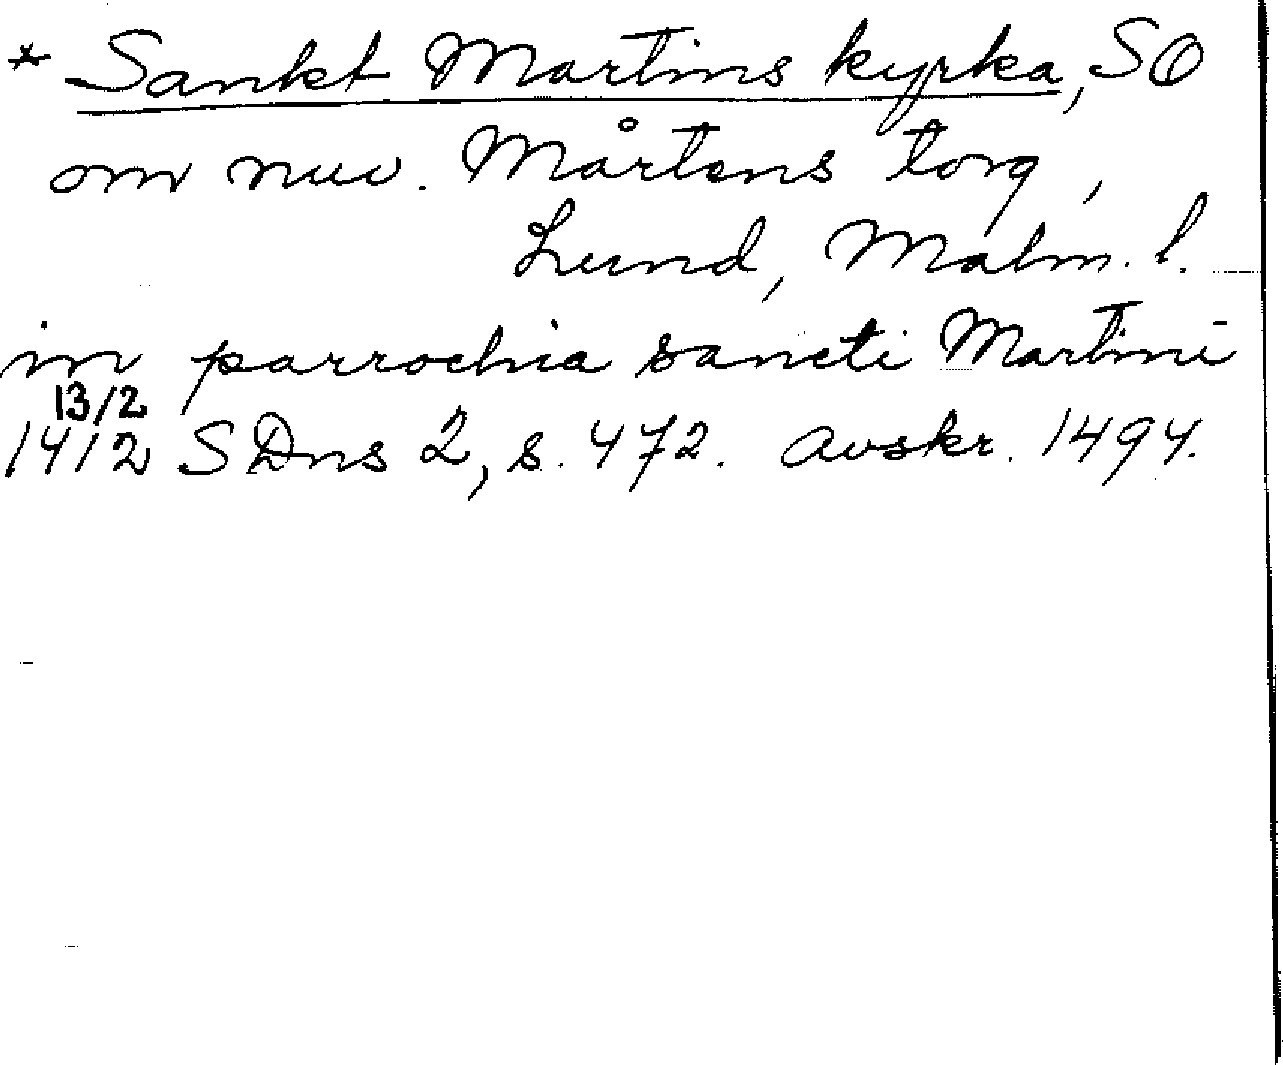 * Sankt Martins kyrka, SO
om nuv. Mårtens torg,
Lund, Malm. l.
in parrochia sancti Martini
13/2
1412 SDns 2, s. 472. avskr. 1494.